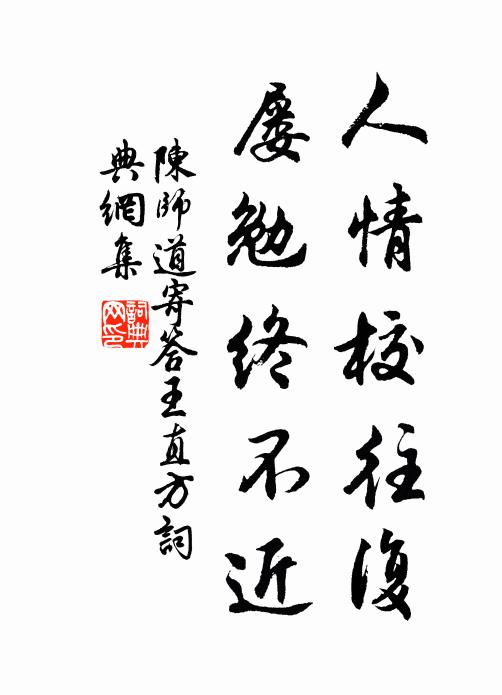 人情校往復
屢勉終不近
陳師道寄答王直方詞
典網集
詞典
网印